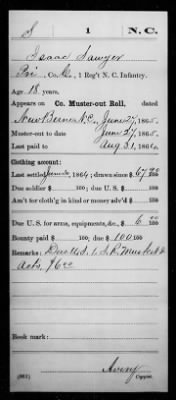 S 1 N.C.
Isaac Sawyer
Pvt, Co. G, 1 Reg't N. C. Infantry.
Age 18 years.
Appears on Co. Muster-out Roll, dated
New Berne N.C., June 27, 1865.
Muster-out to date June 27, 1865.
Last paid to Aug 31, 1864.
Clothing account:
Last settled June 30, 1864; drawn since $ 67 100
Due soldier $ 100; due U. S. $ 100
Am't for cloth'g in kind or money adv'd $ 100
Due U. S. for arms, equipments, &c., $ 6 100
Bounty paid $ 100; due $ 100 100
Remarks: Musket &
Book mark:
Avery
(861) Copyist.